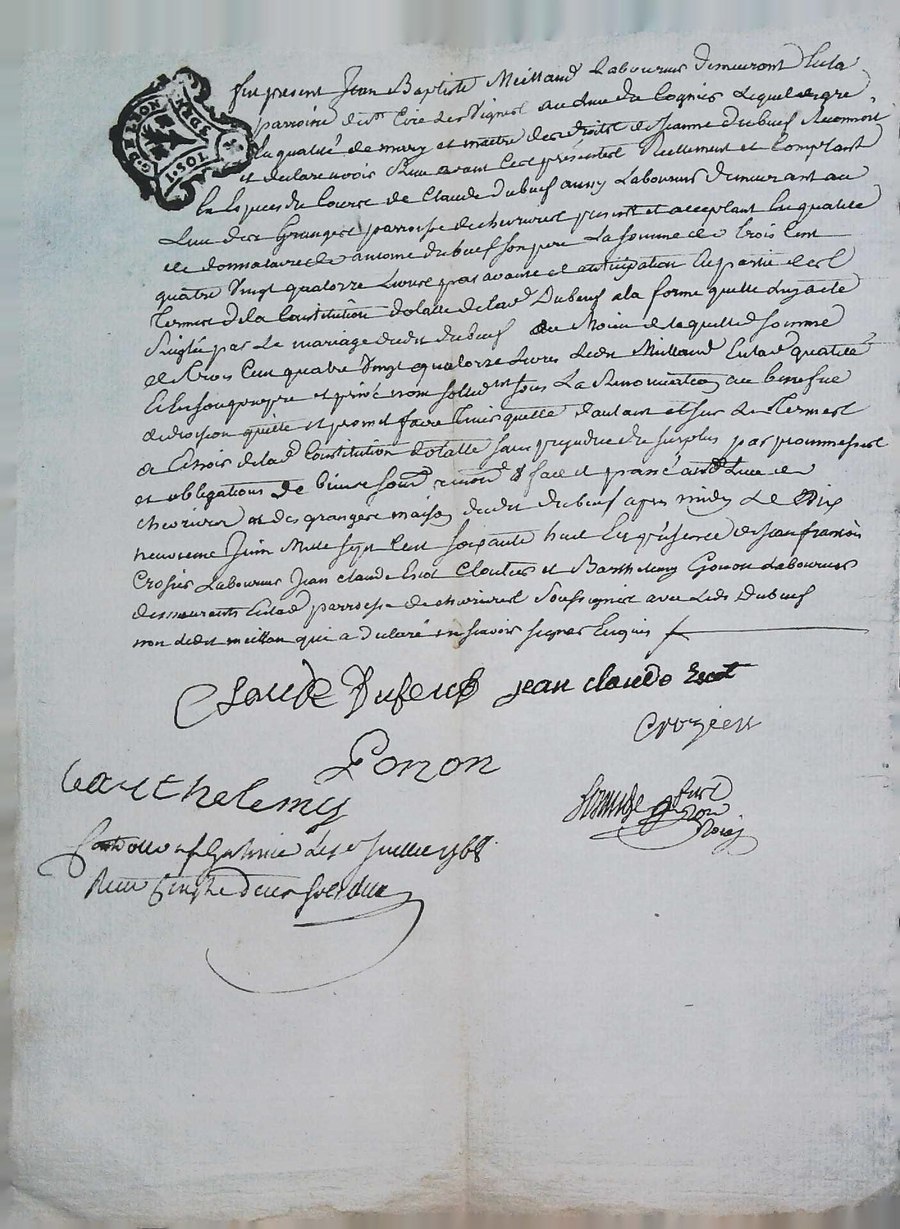 G. DE LYON
1. SOL
3. DEN
fut present Jean Baptiste Meilland Laboureur demeurant en la
parroisse de St Cire Les Vignes au lieu du Cognier Lequel de gre
En qualité de mary et maitre des droits de Jeanne Dubeuf Reconnoit
et declare avoir Reçu avant Ces présentes Réellement et Comptant
En Espèces du Cours de Claude Dubeuf aussy Laboureur demeurant au
Lieu des Granges parroisse de chevrieres present et acceptant En qualité
de donnataire de antoine dubeuf son pere La somme de trois Cent
quatre Vingt quatorze Livres par avance et anticipation En partie des
termes de la Constitution dotalle de lad Dubeuf a la forme quelle Luy a eté
Reglée par Le mariage dudit dubeuf au Moien de laquelle somme
de trois Cent quatre Vingt quatorze Livres Ledit Meilland En lad qualité
Et En son propre et privé nom solidt sous La Renonciation au benefice
de division quitte et promet faire tenir quitte d'autant et sur Les termes
de Choir de lad Constitution dotalle sans prejudice du surplus par promesses
et obligations de biens soum renon & fait et passé aud Lieu de
chevrieres et des granges maison dudit dubeuf apres midy Le Dix
neuvieme Juin Mille Sept Cent Soixante huit En présence de Jean françois
Crosier Laboureur Jean Claude Escot Cloutier et Barthelemy Gonon Laboureur
demeurants En lad parroisse de chevrieres Soussignes avec Led Dubeuf
non ledit meilland qui a declaré ne scavoir signer Enquis
Claude Dubeuf jean claude Escot
Crozier
Gonon
barthelemy
not Roial
Controllé a St Galmier Le Juillet 1768
Reçu Cinq Deux sols